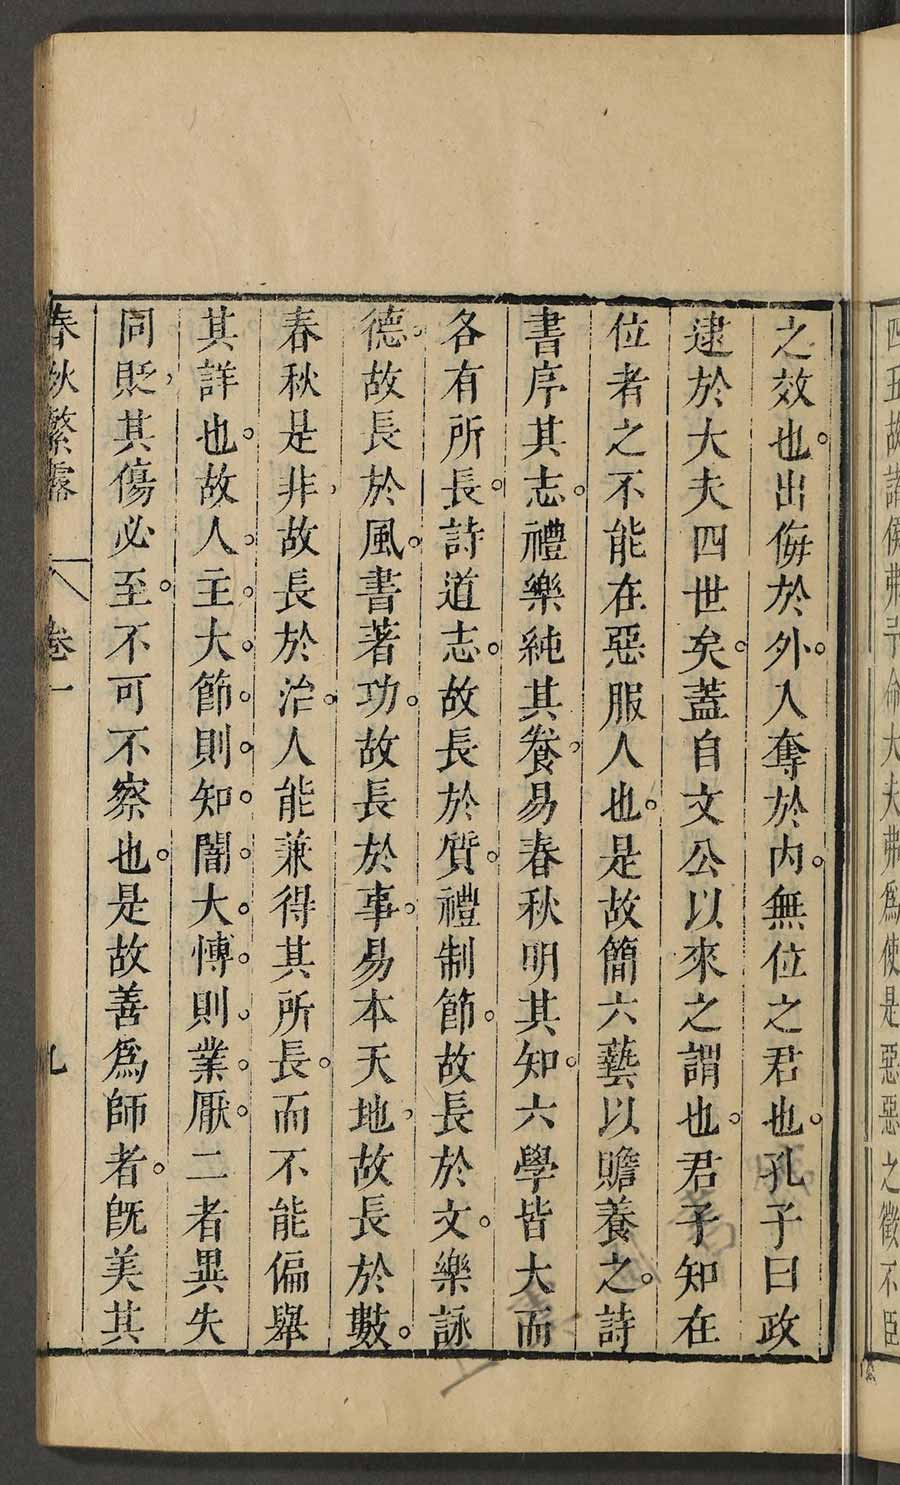 之效也。出侮於外。入奪於内。無位之君也。孔子曰政
逮於大夫四世矣。蓋自文公以來之謂也。君子知在
位者之不能在惡服人也。是故簡六藝以贍養之。詩
書序其志。禮樂純其養。易春秋明其知。六學皆大而
各有所長。詩道志。故長於質。禮制節。故長於文。樂詠
德。故長於風。書著功。故長於事。易本天地。故長於數。
春秋是非、故長於治。人能兼得其所長。而不能偏舉
其詳也。故人。主。大。節。則。知。闇。大。慱。則。業。厭。二者異失
同貶、其傷必至。不可不察也。是故善爲師者。旣美其
春秋繁露 卷一 九
四五故諸侯弗予命大夫弗爲使是惡惡之徵不臣